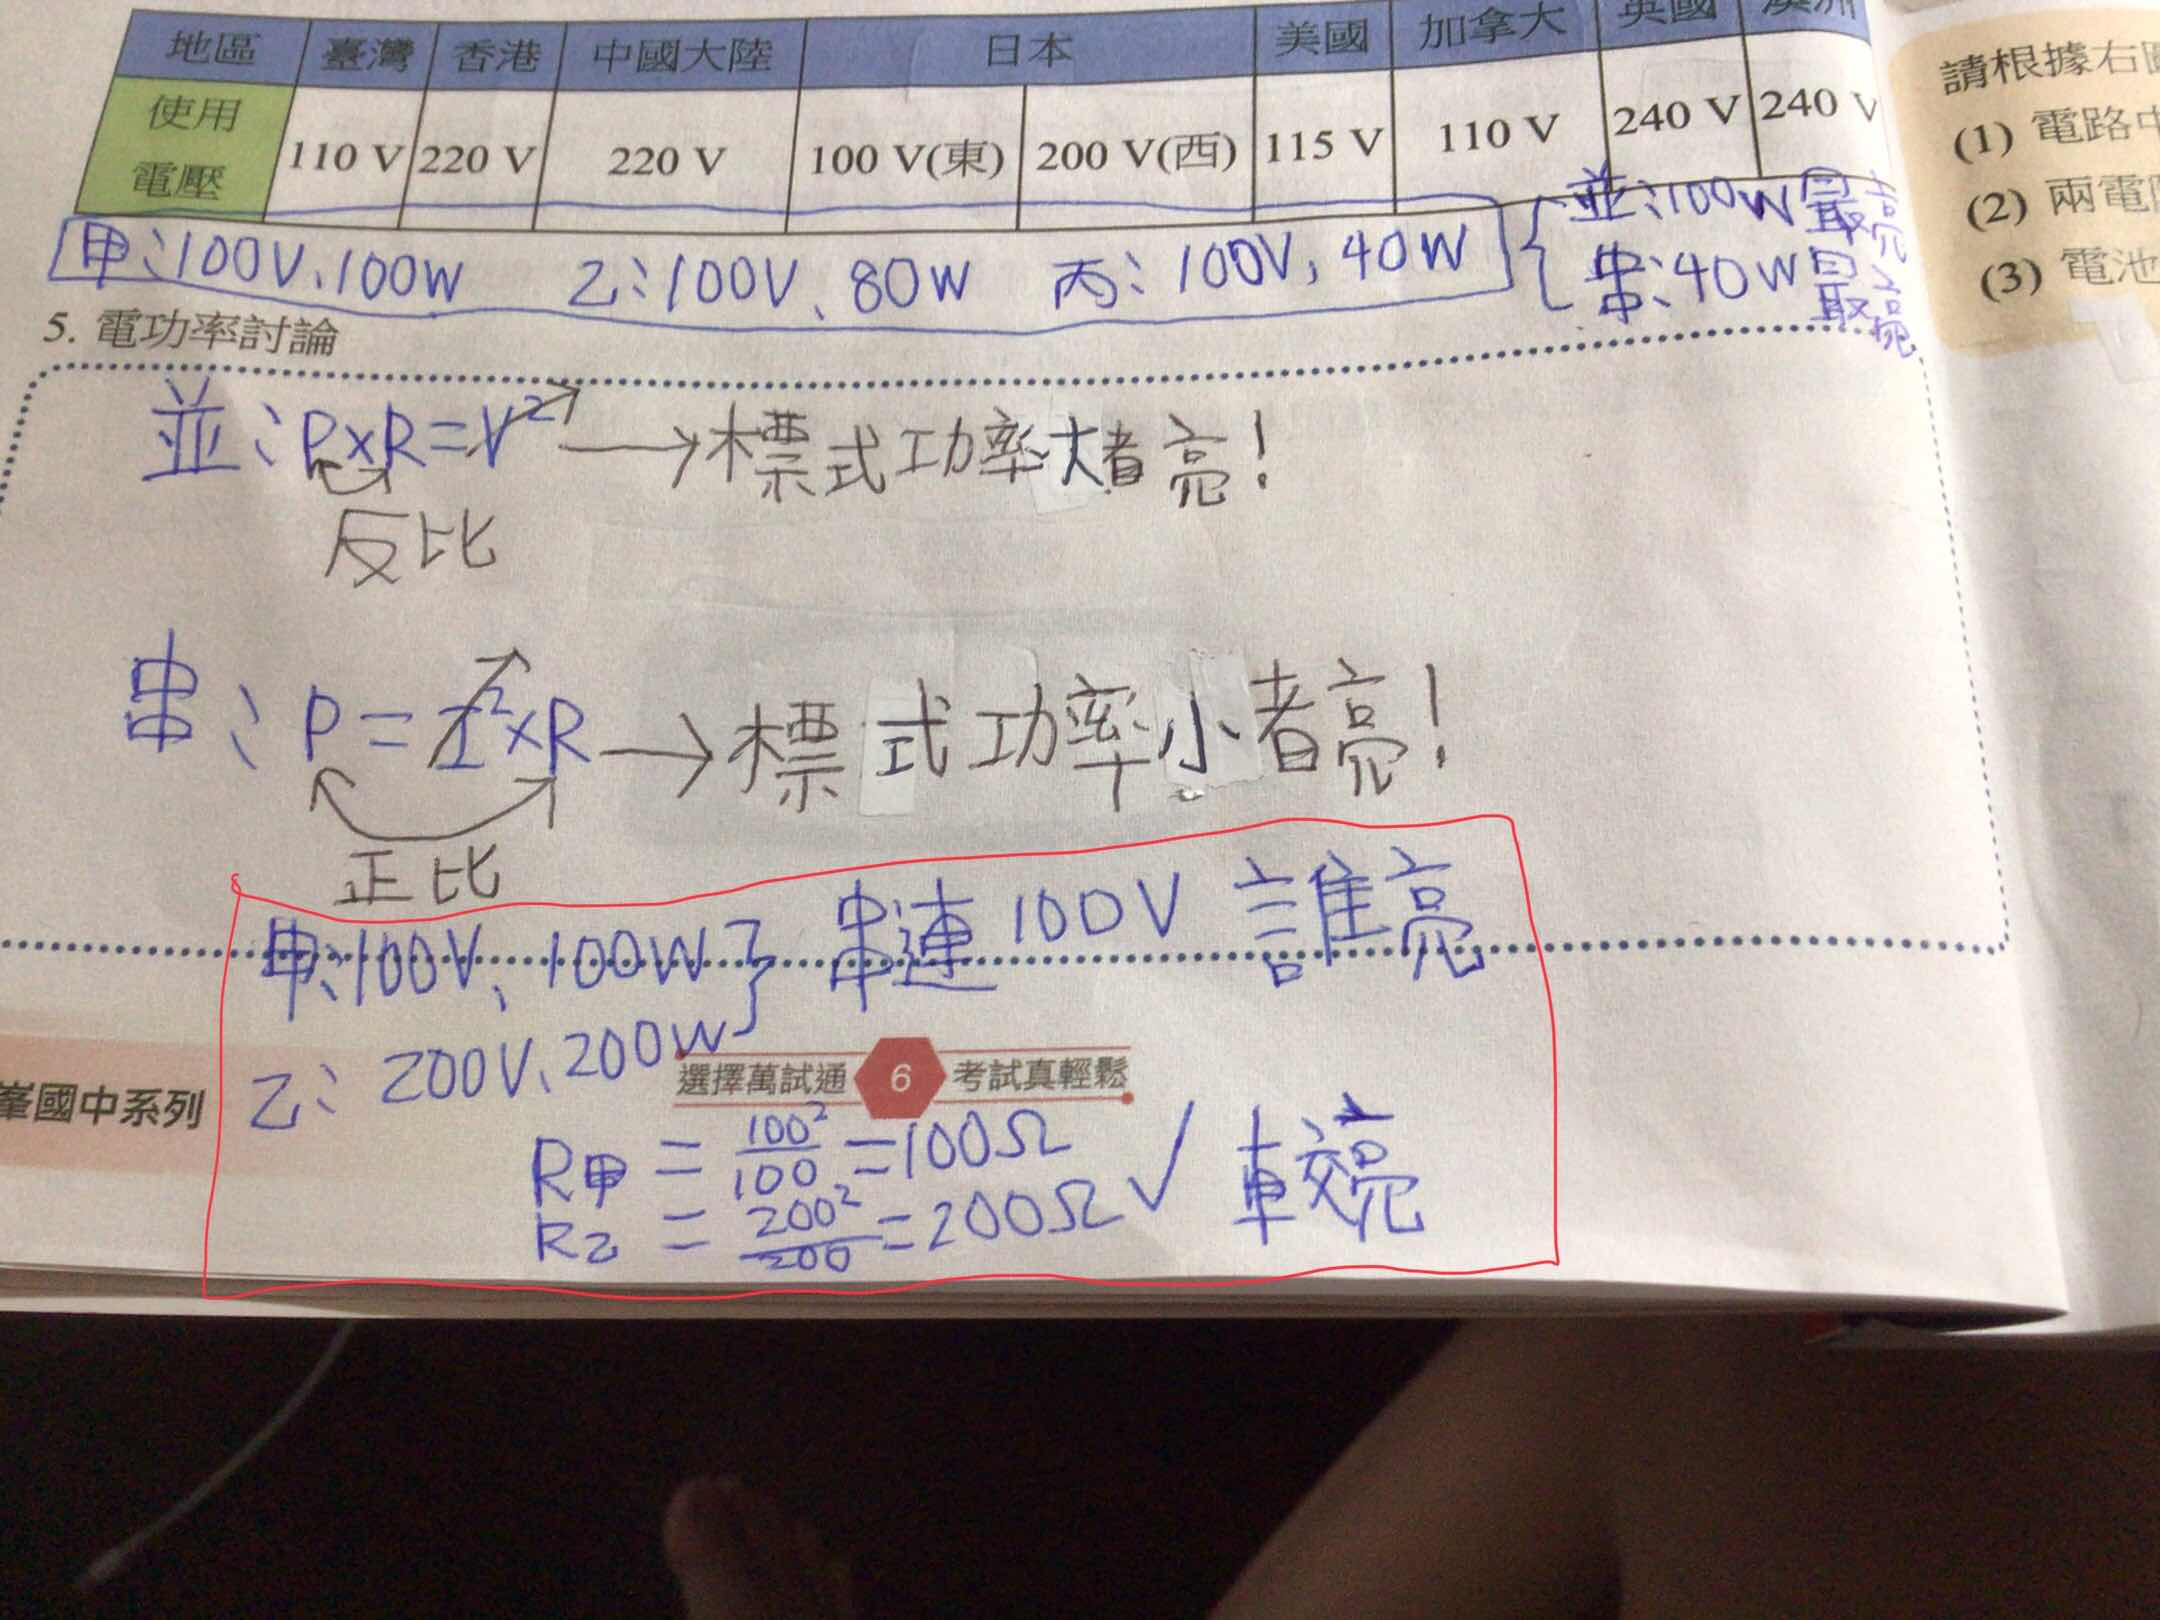 地區 臺灣 香港 中國大陸 日本 美國 加拿大 英國 澳洲
使用電壓 110 V 220 V 220 V 100 V(東) 200 V(西) 115 V 110 V 240 V 240 V
甲:100V、100W 乙:100V、80W 丙:100V,40W
並:100W最亮
串:40W最亮
5. 電功率討論
並:P×R=V² → 標式功率大者亮!
反比
串:P=I²×R → 標式功率小者亮!
正比
甲:100V、100W } 串連100V 誰亮
乙:200V、200W
選擇萬試通 6 考試真輕鬆
峯國中系列
R甲 = 100²/100 = 100Ω
R乙 = 200²/200 = 200Ω ✓ 較亮
請根據右
(1) 電路
(2) 兩電
(3) 電池